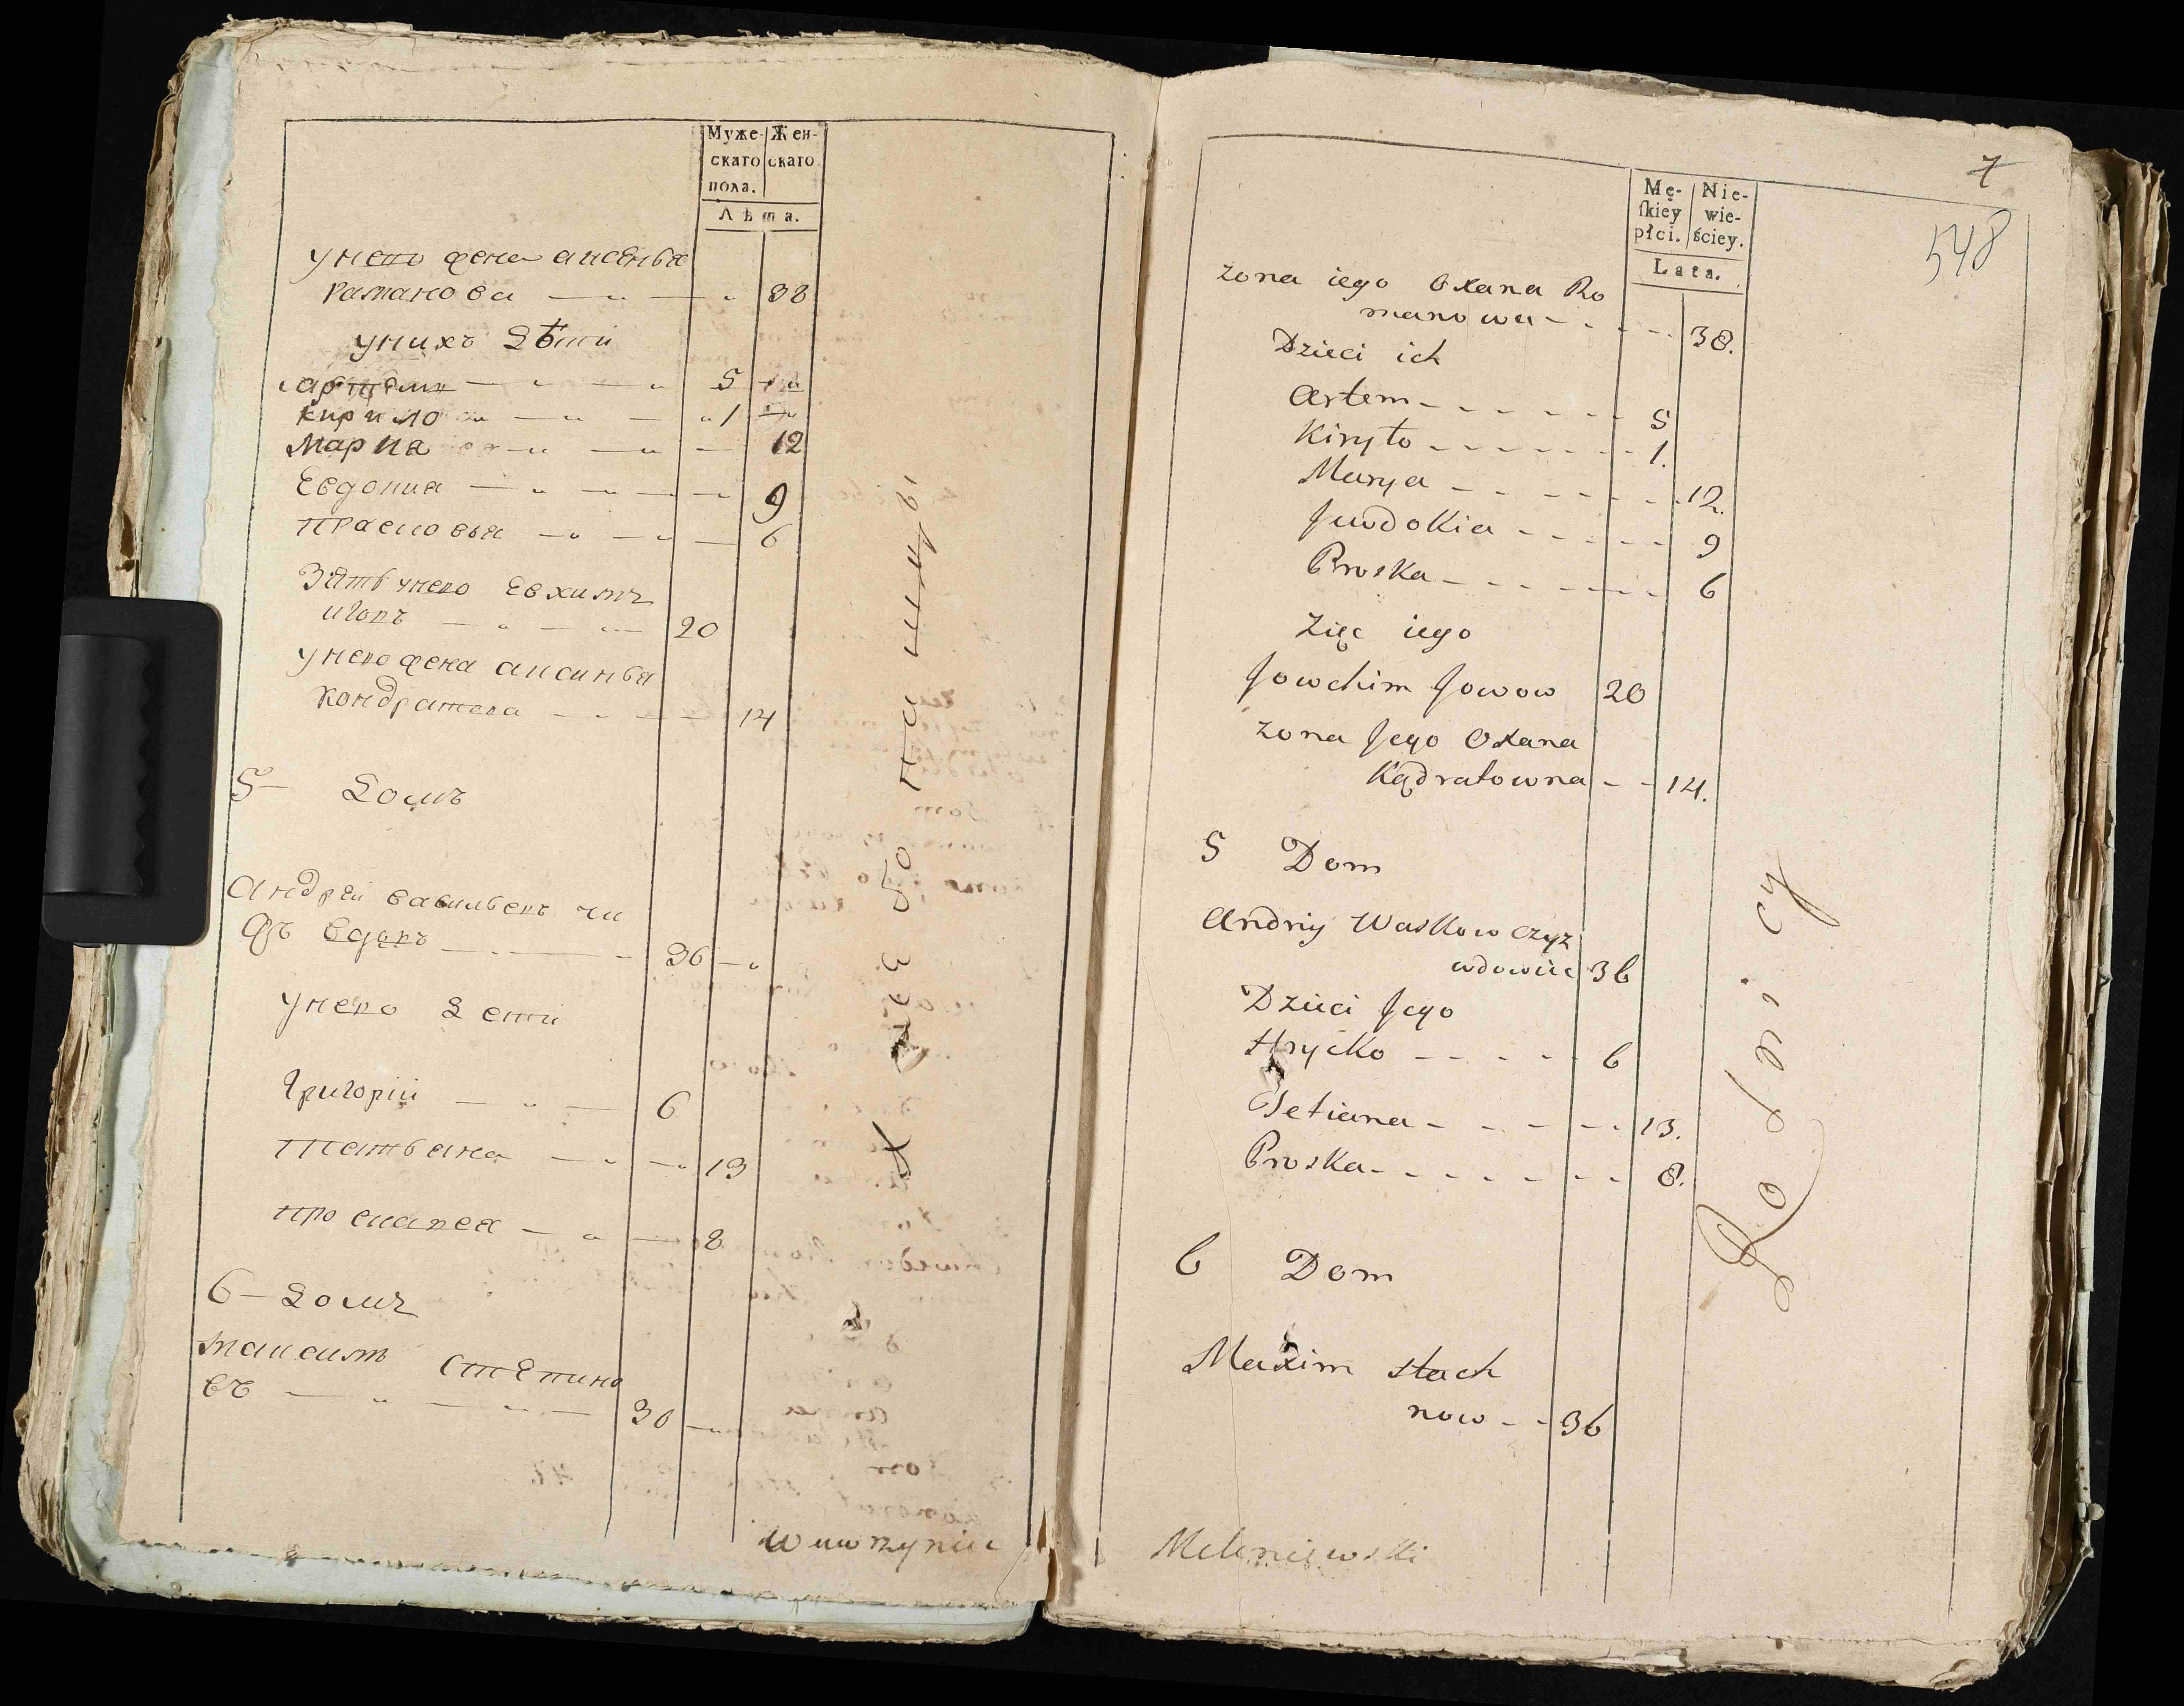 Муже-
скаго
пола.
Жен-
скаго
Лѣта.
унего жена аксенья
раманова 38
унихъ Дѣти
артемъ 5
кирило 1
Мариа 12
Евдокиа 9
Прасковья 6
Зять унего Евхимъ
иговъ 20
унего жена аксинья
кондратева 14
5 Домъ
андрей васильевъ чи
жъ вдовъ 36
унего Дети
Григорій 6
Татьяна 13
8
6 Домъ
максимъ Степано
въ 36
Wawrzyniec
7
548
Mę-
skiéy
płci.
Nie-
wie-
ściey.
Lata.
Zona iego Oxana Ro
manowa 38.
Dzieci ich
Artem 5
Kiryło 1.
Marya 12.
Juwdokia 9
Proska 6
Zięc iego
Jowchim Jowow 20
Zona Jego Oxana
Kądratowna 14.
5 Dom
Andriy Waskow Czyz
wdowiec 36
Dzieci Jego
Hrycko 6
Tetiana 13.
Proska 8.
6 Dom
Maxim Stach
now 36